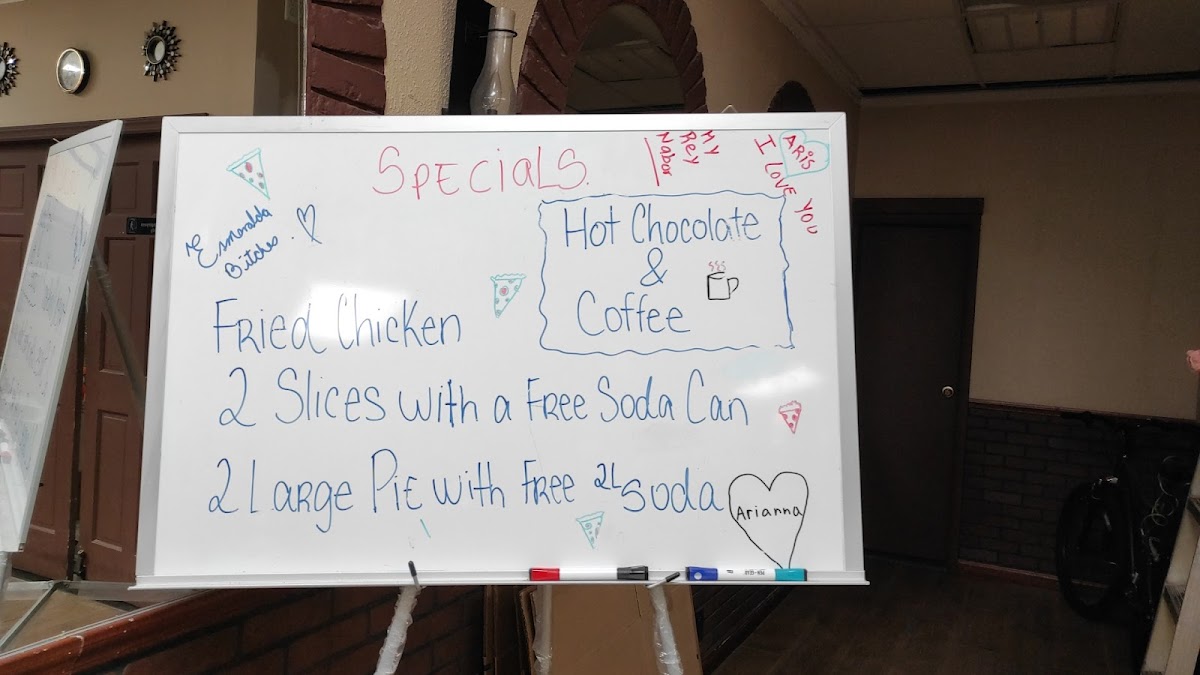 SPECiALS.
My
Rey
Nabor
ARiS
I LOVE YOU
Esmeralda
Bitches
Hot Chocolate
&
Coffee
Fried Chicken
2 Slices with a Free Soda Can
2 Large Pie with Free 2L Soda
Arianna